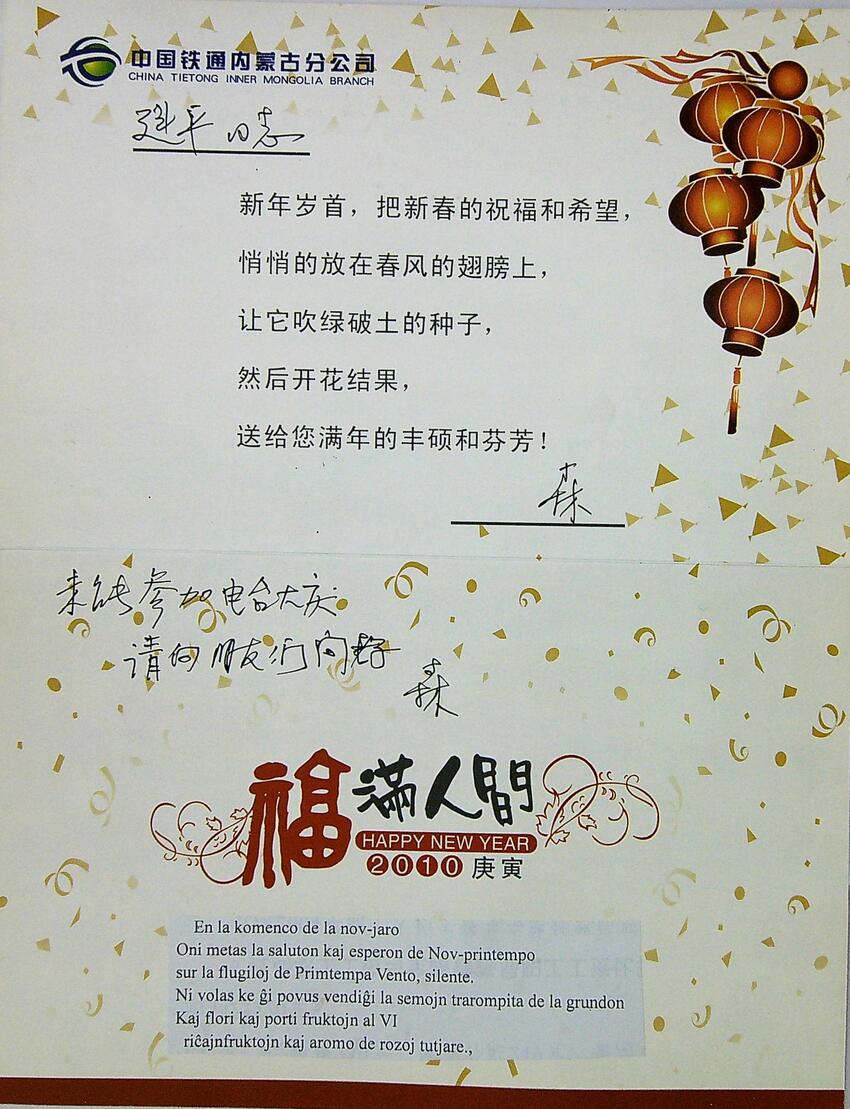 中国铁通内蒙古分公司
CHINA TIETONG INNER MONGOLIA BRANCH
建平同志
新年岁首，把新春的祝福和希望，
悄悄的放在春风的翅膀上，
让它吹绿破土的种子，
然后开花结果，
送给您满年的丰硕和芬芳！
森
未能参加电台大庆
请向朋友们问好
森
福满人間
HAPPY NEW YEAR
2010 庚寅
En la komenco de la nov-jaro
Oni metas la saluton kaj esperon de Nov-printempo
sur la flugiloj de Primtempa Vento, silente.
Ni volas ke ĝi povus vendiĝi la semojn trarompita de la grundon
Kaj flori kaj porti fruktojn al VI
riĉajnfruktojn kaj aromo de rozoj tutjare.,